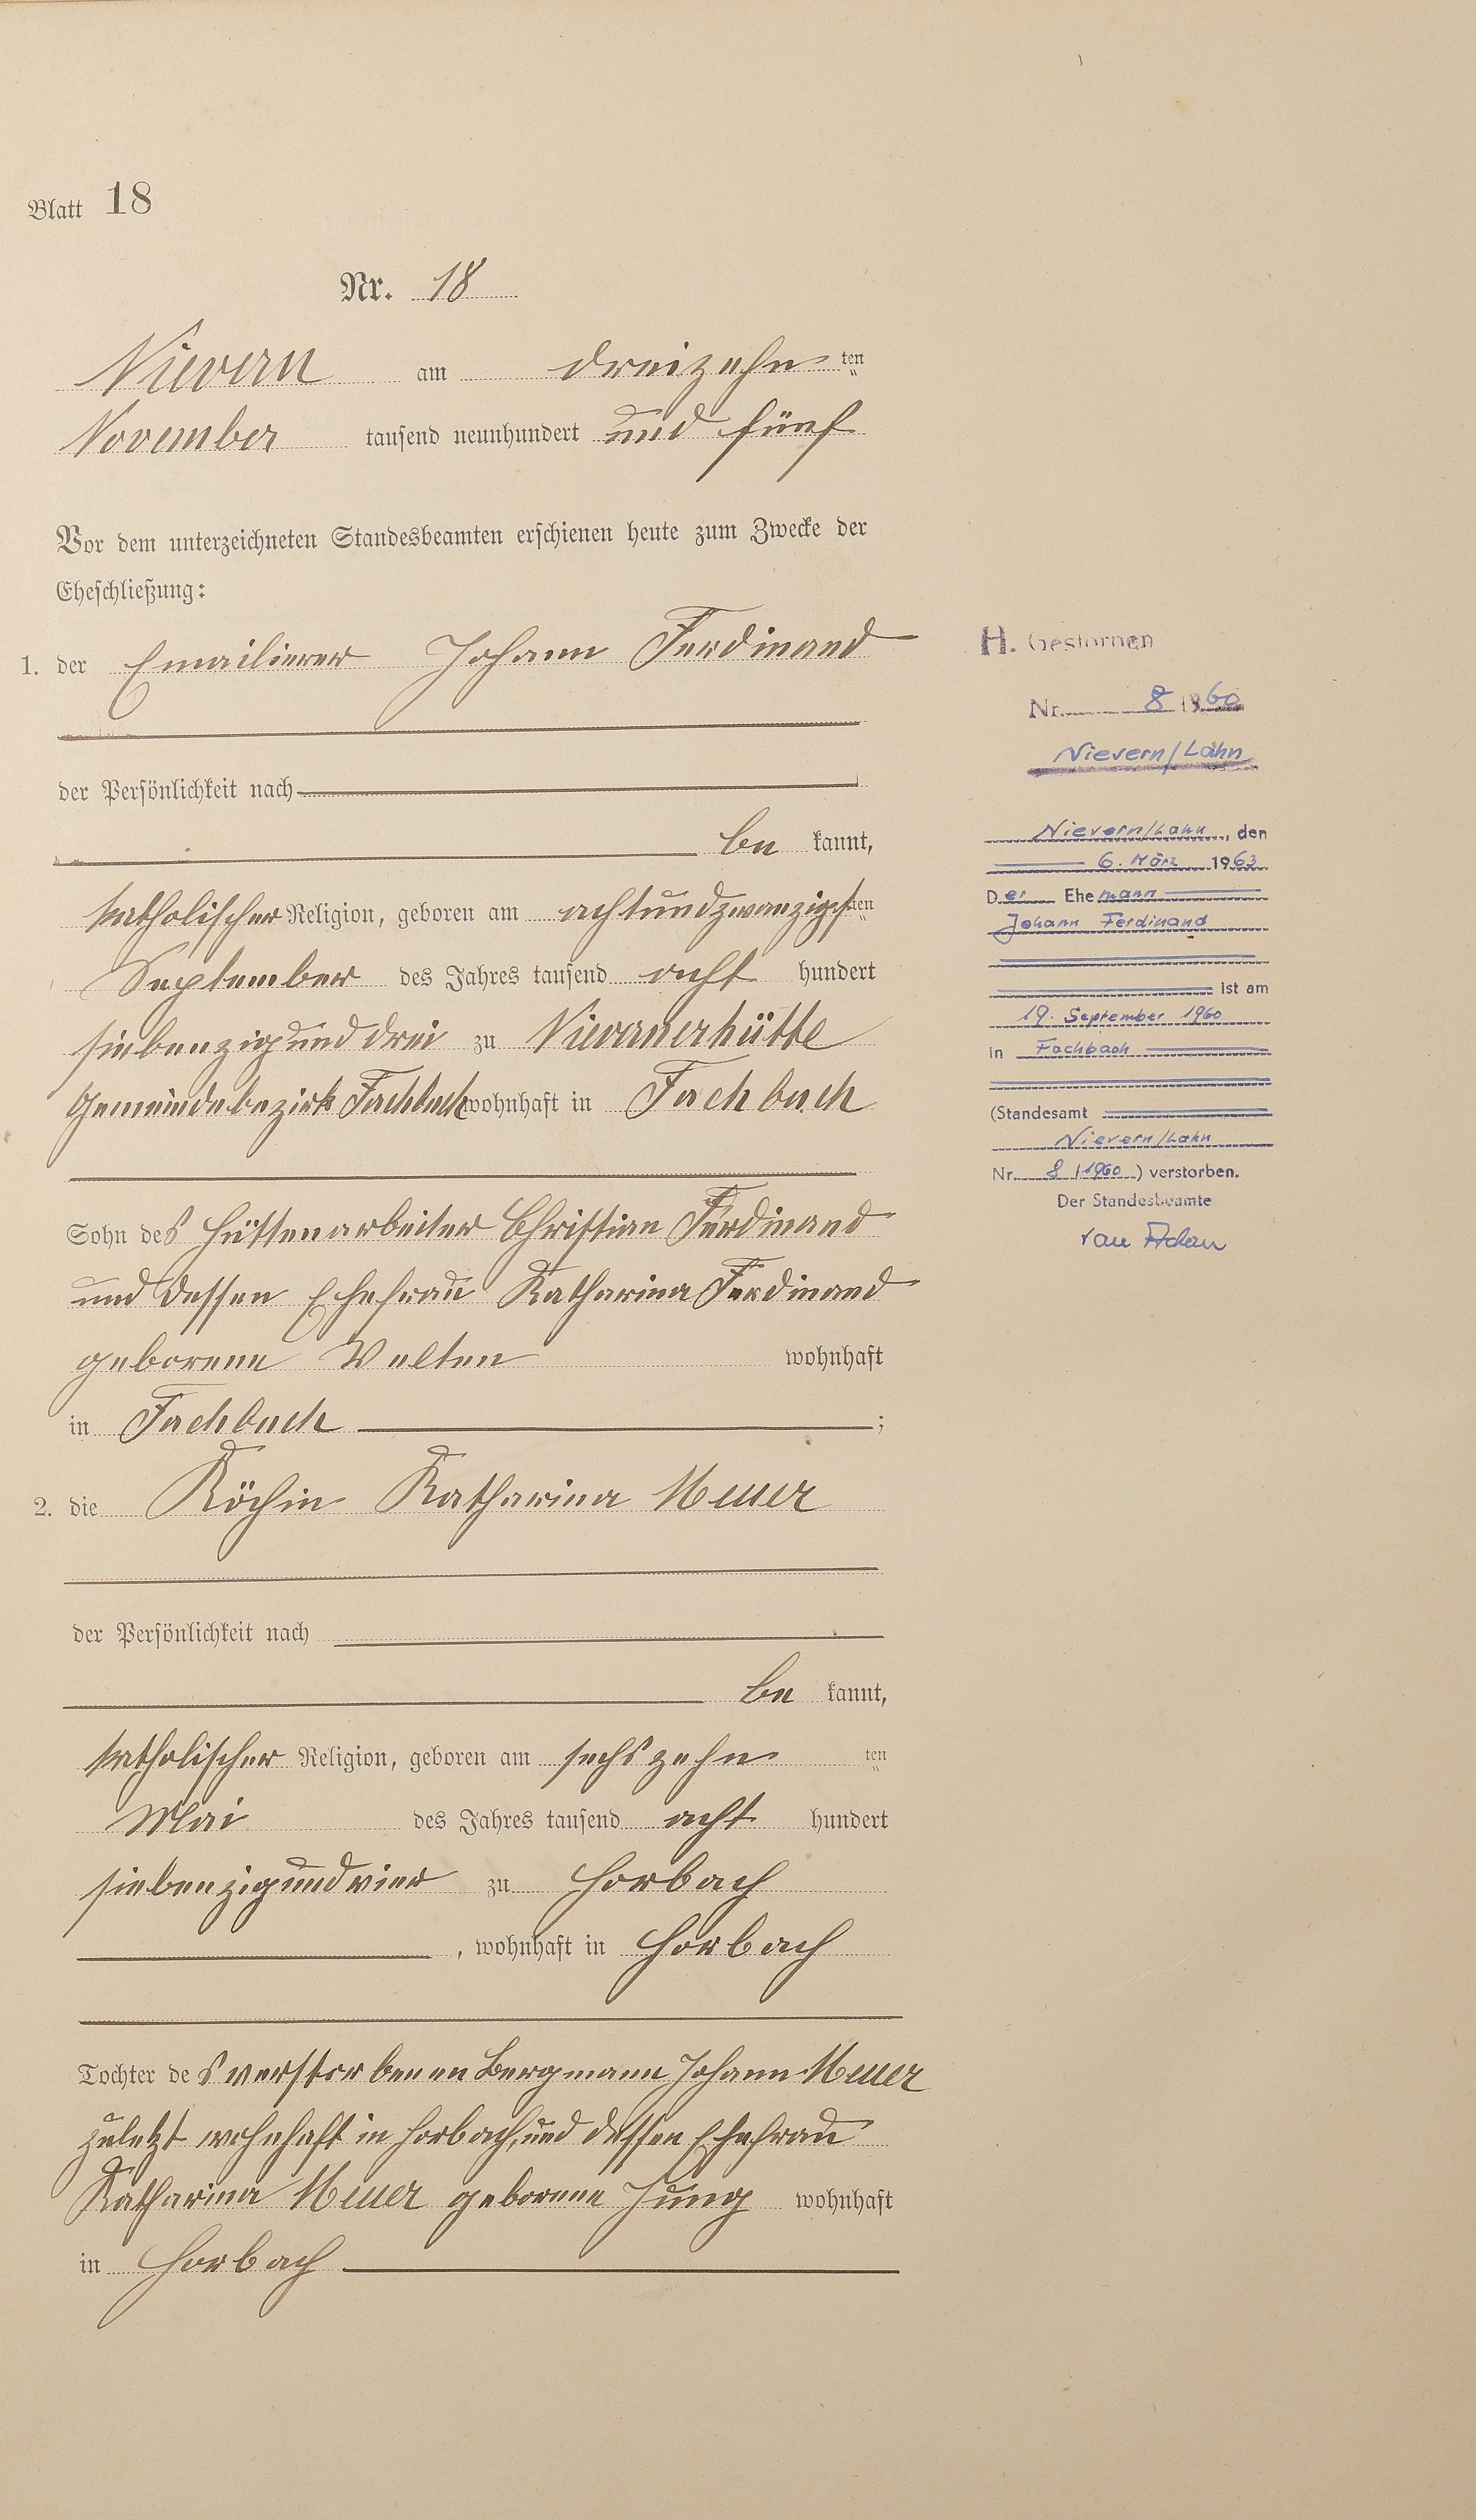 Blatt 18
Nr. 18
Nievern am dreizehnten
November tausend neunhundert und fünf
Vor dem unterzeichneten Standesbeamten erschienen heute zum Zwecke der
Eheschließung:
1. der Emailierer Johann Ferdinand
der Persönlichkeit nach
be kannt,
katholischer Religion, geboren am achtundzwanzigsten
September des Jahres tausend acht hundert
siebenzigunddrei zu Nievernerhütte
Gemeindebezirk Fachbach wohnhaft in Fachbach
Sohn des Hüttenarbeiter Christian Ferdinand
und dessen Ehefrau Katharina Ferdinand
geborene Welten wohnhaft
in Fachbach ;
2. die Köchin Katharina Meuer
der Persönlichkeit nach
be kannt,
katholischer Religion, geboren am sechszehn ten
Mai des Jahres tausend acht hundert
siebenzigundvier zu Horbach
, wohnhaft in Horbach
Tochter des verstorbenen Bergmann Johann Meuer
zuletzt wohnhaft in Horbach, und dessen Ehefrau
Katharina Meuer geborene Jung wohnhaft
in Horbach
H. Gestorben
Nr. 8 1960
Nievern/Lahn
Nievern/Lahn, den
6. März 1963
Der Ehemann
Johann Ferdinand
ist am
19. September 1960
in Fachbach
(Standesamt
Nievern/Lahn
Nr. 8/1960) verstorben.
Der Standesbeamte